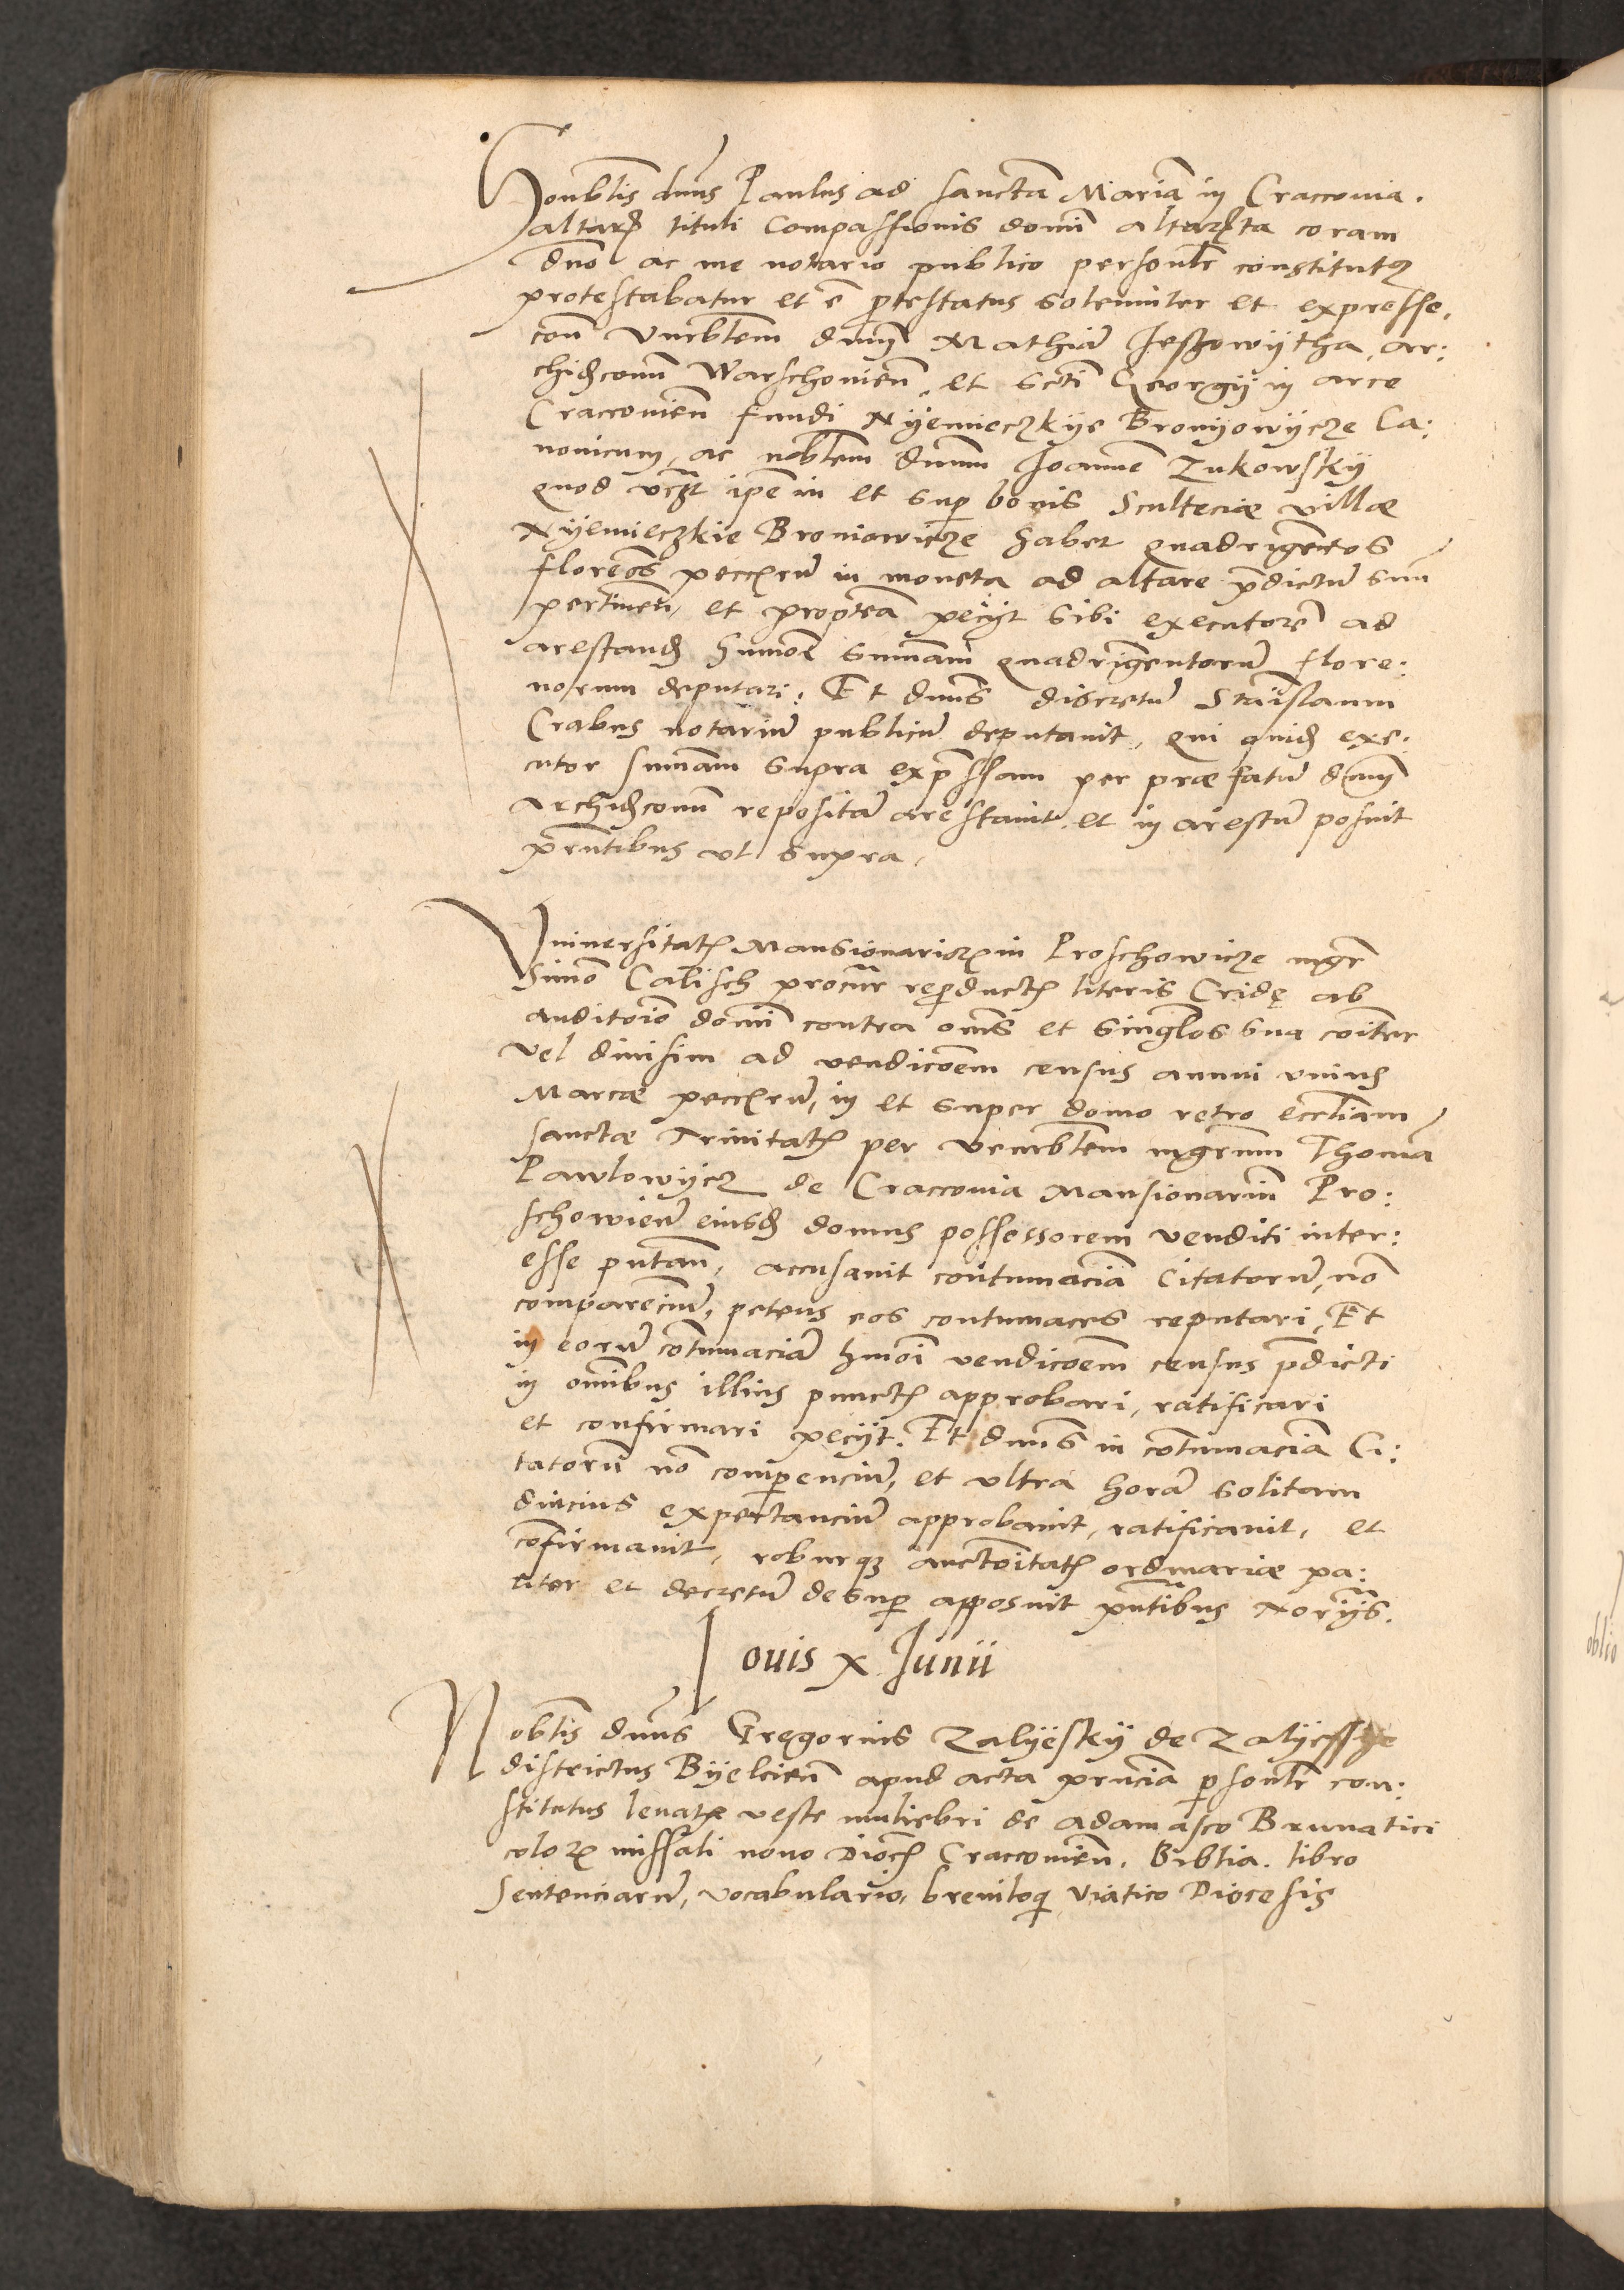 Honblis dnus Paulus ad sanctã Mariã in Cracovia.
altarꝭ tituli Compassionis domĩ altarista coram
dno ac me notario publico personlr constitutꝰ
protestabatur et ẽ ꝓtestatus solenniter et expresse,
con̄ Vnrblem dnum Mathiã Jeszowytha, ar:
chidiconũ Warschovień, et scti Georgij in arce
Cracovień fundi Nyemieczkye Bronyowycze Ca:
nonicum, ac noblem dnum Joannẽ Zukowsky
quod ipẽ in et suꝑ bonis Sculteciæ villæ
Nyemieczkie Broniowicze habet quadrigẽtos
florẽos pecc̃iarũ in moneta ad altare p̃dictũ suũ
pertineń, et propterea pecijt sibi executorẽ ad
arestand hmõi sum̃am quadringentorũ flore:
norum deputari. Et dnus discretũ Stãislaum
Crabus notariũ publicũ deputavit, qui quid exe:
cutor sum̃am supra exp̃ssam per præfatũ dnum
Archidiconũ repositã arestavit et in arestũ posuit
p̃ntibus ut supra.
Vniversitatis Mansionariorum in Proschowicze mgr
Simõ Calisch procur reproductis literis Cridę ab
auditorio domĩ contra om̃s et singlos sua coiter
vel divisim ad vendicõem census annui unius
Marcæ pecc̃iarũ, in et super domo retro eccliam
sanctæ Trinitatis per Venrblem mgrum Thomã
Pawlowycz de Cracovia Mansionariũ Pro:
schowień eiusd domus possessorem venditi inter:
esse putań, accusavit contumaciã Citatorũ, nõ
compareciũ, petens eos contumaces reputari, Et
in eorũ cõtumaciã hmõi vendicõem census p̃dicti
in om̃ibus illius punctis approbari, ratificari
et confirmari pecijt. Et dnus in cõtumaciã Ci:
tatorũ nõ comꝑenciũ, et ultra horã solitam
diucius expectanciũ approbavit, ratificavit, et
cõfirmavit, roburqꝫ auctoritatis ordinariæ pa:
riter et decretũ desuꝑ apposuit p̃ntibus Norijs.
Iovis x Junii
Noblis dnus Gregorius Zalyesky de Zalyessye
districtus Byelcień apud acta p̃ncia ꝑsonlr con:
stitutus levatæ veste muliebri de adamasco Brunatici
coloris missali novo Diocis Cracovień, Biblia, libro
sentenciarũ, vocabulario, breviloqi viatico Diocesis